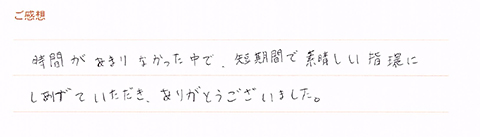 ご感想
時間があまりなかった中で、短期間で素晴しい指環に
しあげていただき、ありがとうございました。